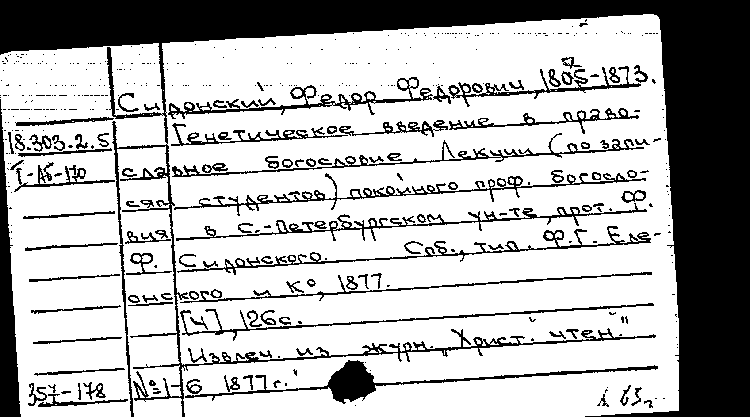 Сидонский, Федор Федорович, 1805-1873.
18.303.2.5 Генетическое введение в право-
I-АБ-170 славное богословие. Лекции (по запи-
сям студентов) покойного проф. богосло-
вия в С.-Петербургском ун-те, прот. Ф.
Ф. Сидонского. Спб., тип. Ф.Г. Еле-
онского и К°, 1877.
[4], 126с.
"Извлеч. из журн. "Христ. чтен."
357-178 №1-6, 1877г.